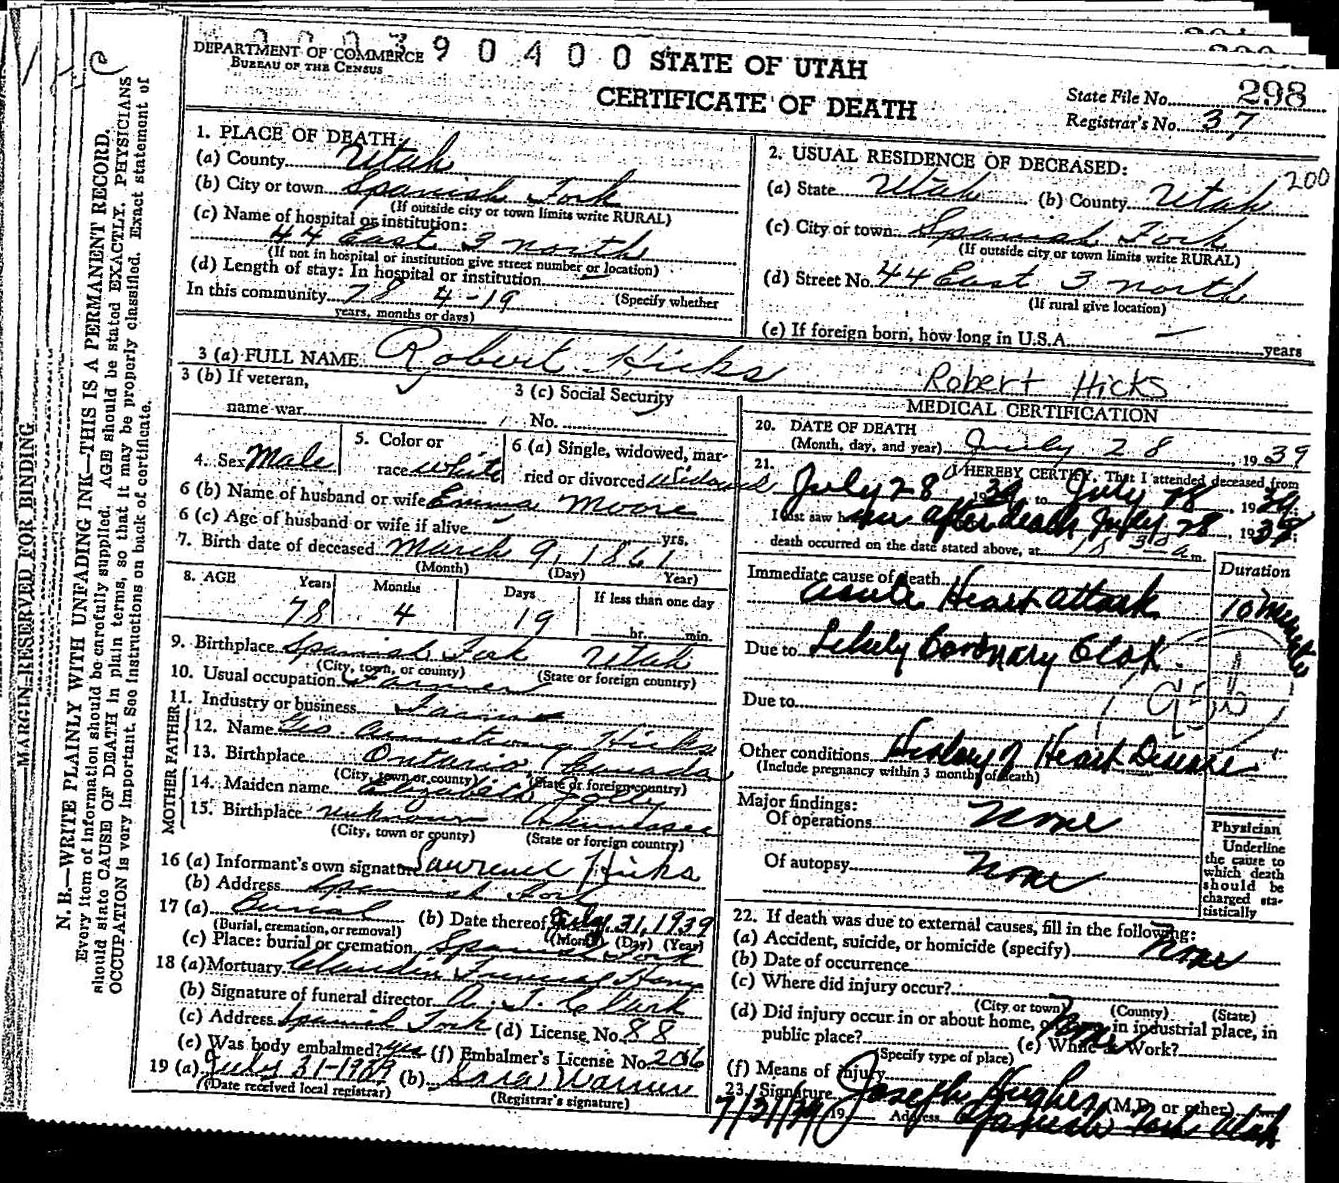 00390400
DEPARTMENT OF COMMERCE
BUREAU OF THE CENSUS
STATE OF UTAH
CERTIFICATE OF DEATH
State File No. 298
Registrar's No. 37
MARGIN RESERVED FOR BINDING
N. B.—WRITE PLAINLY WITH UNFADING INK—THIS IS A PERMANENT RECORD.
Every item of information should be carefully supplied. AGE should be stated EXACTLY. PHYSICIANS
should state CAUSE OF DEATH in plain terms, so that it may be properly classified. Exact statement of
OCCUPATION is very important. See instructions on back of certificate.
1. PLACE OF DEATH:
(a) County Utah
(b) City or town Spanish Fork
(If outside city or town limits write RURAL)
(c) Name of hospital or institution:
44 East 3 north
(If not in hospital or institution give street number or location)
(d) Length of stay: In hospital or institution
In this community 78 4-19 (Specify whether
years, months or days)
2. USUAL RESIDENCE OF DECEASED:
200
(a) State Utah (b) County Utah
(c) City or town Spanish Fork
(If outside city or town limits write RURAL)
(d) Street No. 44 East 3 north
(If rural give location)
(e) If foreign born, how long in U.S.A. — years
3 (a) FULL NAME Robert Hicks Robert Hicks
3 (b) If veteran,
name war
3 (c) Social Security
No.
4. Sex Male
5. Color or
race white
6 (a) Single, widowed, mar-
ried or divorced Widowed
6 (b) Name of husband or wife Emma Moore
6 (c) Age of husband or wife if alive yrs.
7. Birth date of deceased March 9, 1861
(Month) (Day) Year)
8. AGE Years Months Days If less than one day
78 4 19 hr. min.
9. Birthplace Spanish Fork Utah
(City, town, or county) (State or foreign country)
10. Usual occupation Farmer
11. Industry or business
FATHER
12. Name Geo. Armstrong Hicks
13. Birthplace Ontario Canada
(City, town or county) (State or foreign country)
MOTHER
14. Maiden name Elizabeth Jolley
15. Birthplace unknown Tennessee
(City, town or county) (State or foreign country)
16 (a) Informant's own signature Lawrence Hicks
(b) Address Spanish Fork
17 (a) Burial (b) Date thereof July 31, 1939
(Burial, cremation, or removal) (Month) (Day) (Year)
(c) Place: burial or cremation Spanish Fork
18 (a) Mortuary Funeral Home
(b) Signature of funeral director A. Clark
(c) Address Spanish Fork (d) License No. 88
(e) Was body embalmed? yes (f) Embalmer's License No. 206
19 (a) July 31-1939 (b) Sara Warner
(Date received local registrar) (Registrar's signature)
MEDICAL CERTIFICATION
20. DATE OF DEATH
(Month, day, and year) July 28, 1939
21. I HEREBY CERTIFY, That I attended deceased from
July 28 1939 to July 28 1939
I last saw him after death July 28 1939
death occurred on the date stated above, at a m.
Immediate cause of death Duration
acute Heart attack 10 minutes
Due to Likely Coronary Clot
Due to
Other conditions History of Heart Disease
(Include pregnancy within 3 months of death)
Major findings:
Of operations None
Of autopsy None
Physician
Underline
the cause to
which death
should be
charged sta-
tistically
22. If death was due to external causes, fill in the following:
(a) Accident, suicide, or homicide (specify) None
(b) Date of occurrence
(c) Where did injury occur?
(City or town) (County) (State)
(d) Did injury occur in or about home, in industrial place, in
public place? None (e) While Work?
(Specify type of place)
(f) Means of injury
23. Signature Joseph Hughes (M.D. or other)
7/31/39 19 Address Spanish Fork Utah